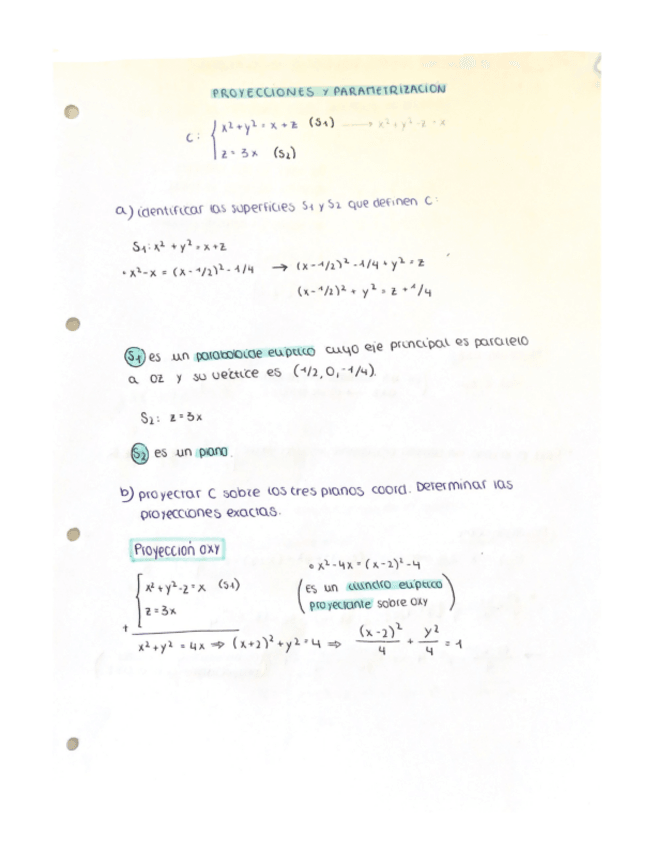 PROYECCIONES Y PARAMETRIZACION
C: { x² + y² = x + z (S1) → x² + y² - z = x
z = 3x (S2)
a) identificar las superficies S1 y S2 que definen C:
S1: x² + y² = x + z
· x² - x = (x - 1/2)² - 1/4 → (x - 1/2)² - 1/4 + y² = z
(x - 1/2)² + y² = z + 1/4
S1 es un paraboloide elíptico cuyo eje principal es paralelo
a OZ y su vértice es (1/2, 0, -1/4).
S2: z = 3x
S2 es un plano.
b) proyectar C sobre los tres planos coord. Determinar las
proyecciones exactas.
Proyección OXY
∘ x² - 4x = (x - 2)² - 4
{ x² + y² - z = x (S1)
z = 3x
(es un cilindro elíptico
proyectante sobre OXY)
+
x² + y² = 4x ⇒ (x + 2)² + y² = 4 ⇒ (x - 2)²/4 + y²/4 = 1